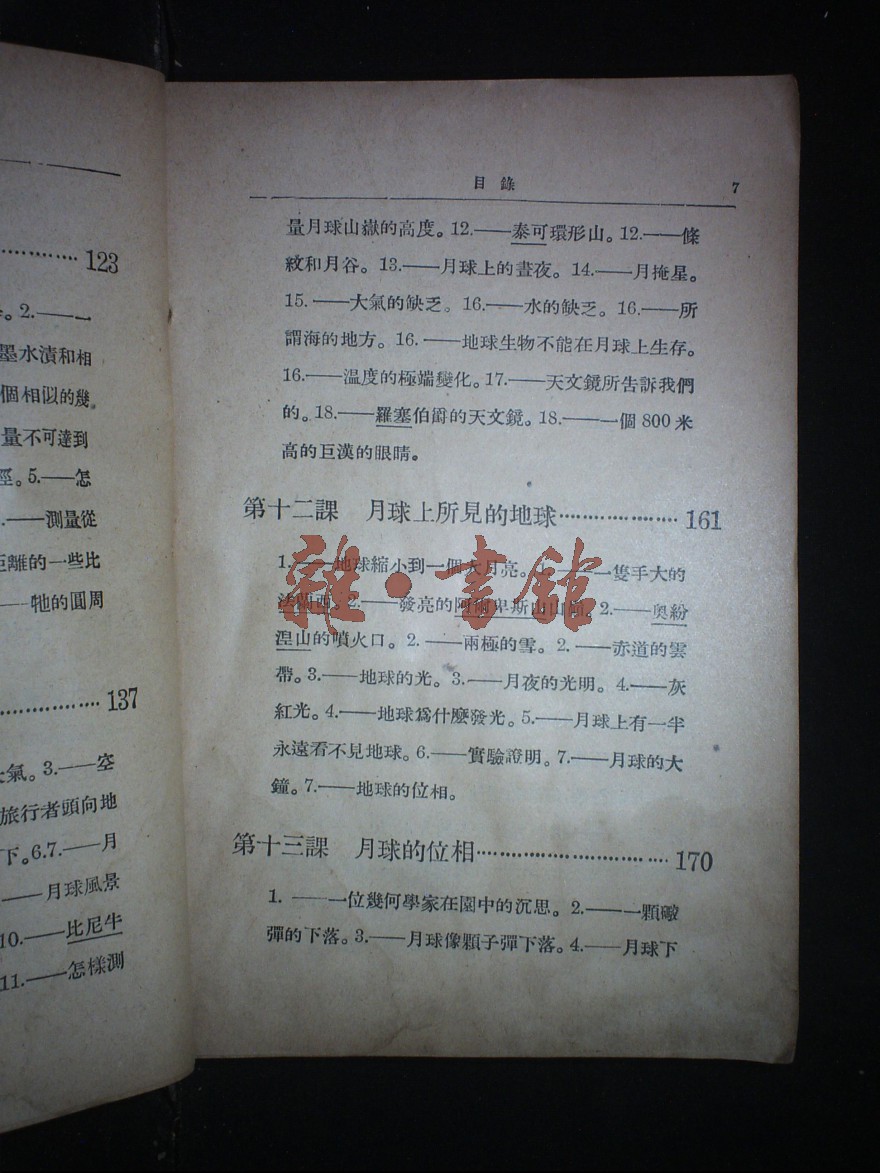 123
。2.——一
墨水漬和相
個相似的幾
量不可達到
徑。5.——怎
.——測量從
距離的一些比
——牠的圓周
137
大氣。3.——空
旅行者頭向地
下。6.7.——月
——月球風景
10.——比尼牛
11.——怎樣測
目錄 7
量月球山嶽的高度。12.——泰可環形山。12.——條
紋和月谷。13.——月球上的晝夜。14.——月掩星。
15.——大氣的缺乏。16.——水的缺乏。16.——所
謂海的地方。16.——地球生物不能在月球上生存。
16.——温度的極端變化。17.——天文鏡所告訴我們
的。18.——羅塞伯爵的天文鏡。18.——一個800米
高的巨漢的眼睛。
第十二課 月球上所見的地球 161
1.——地球縮小到一個大月亮。1.——一隻手大的
法蘭西。2.——發亮的阿爾卑斯山山嶺。2.——奧紛
湼山的噴火口。2.——兩極的雪。2.——赤道的雲
帶。3.——地球的光。3.——月夜的光明。4.——灰
紅光。4.——地球爲什麼發光。5.——月球上有一半
永遠看不見地球。6.——實驗證明。7.——月球的大
鐘。7.——地球的位相。
第十三課 月球的位相 170
1.——一位幾何學家在園中的沉思。2.——一顆礮
彈的下落。3.——月球像顆子彈下落。4.——月球下
雜·書館